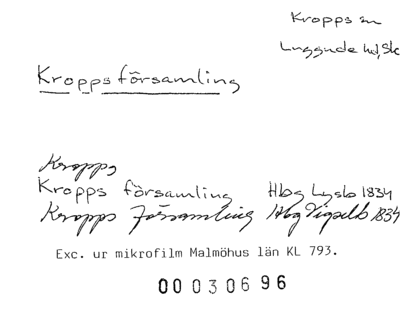 Kropps sn
Luggude hd, Sk
Kropps församling
Kropps
Kropps församling Hbg Lysb 1834
Kropps Församling Hbg Vigselb 1834
Exc. ur mikrofilm Malmöhus län KL 793.
00 030696